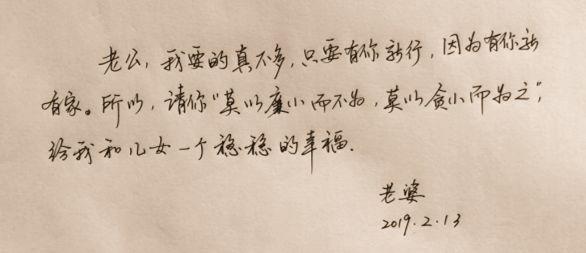 老公，我要的真不多，只要有你就行，因为有你就
有家。所以，请你“莫以廉小而不为，莫以贪小而为之”，
给我和儿女一个稳稳的幸福.
老婆
2019.2.13